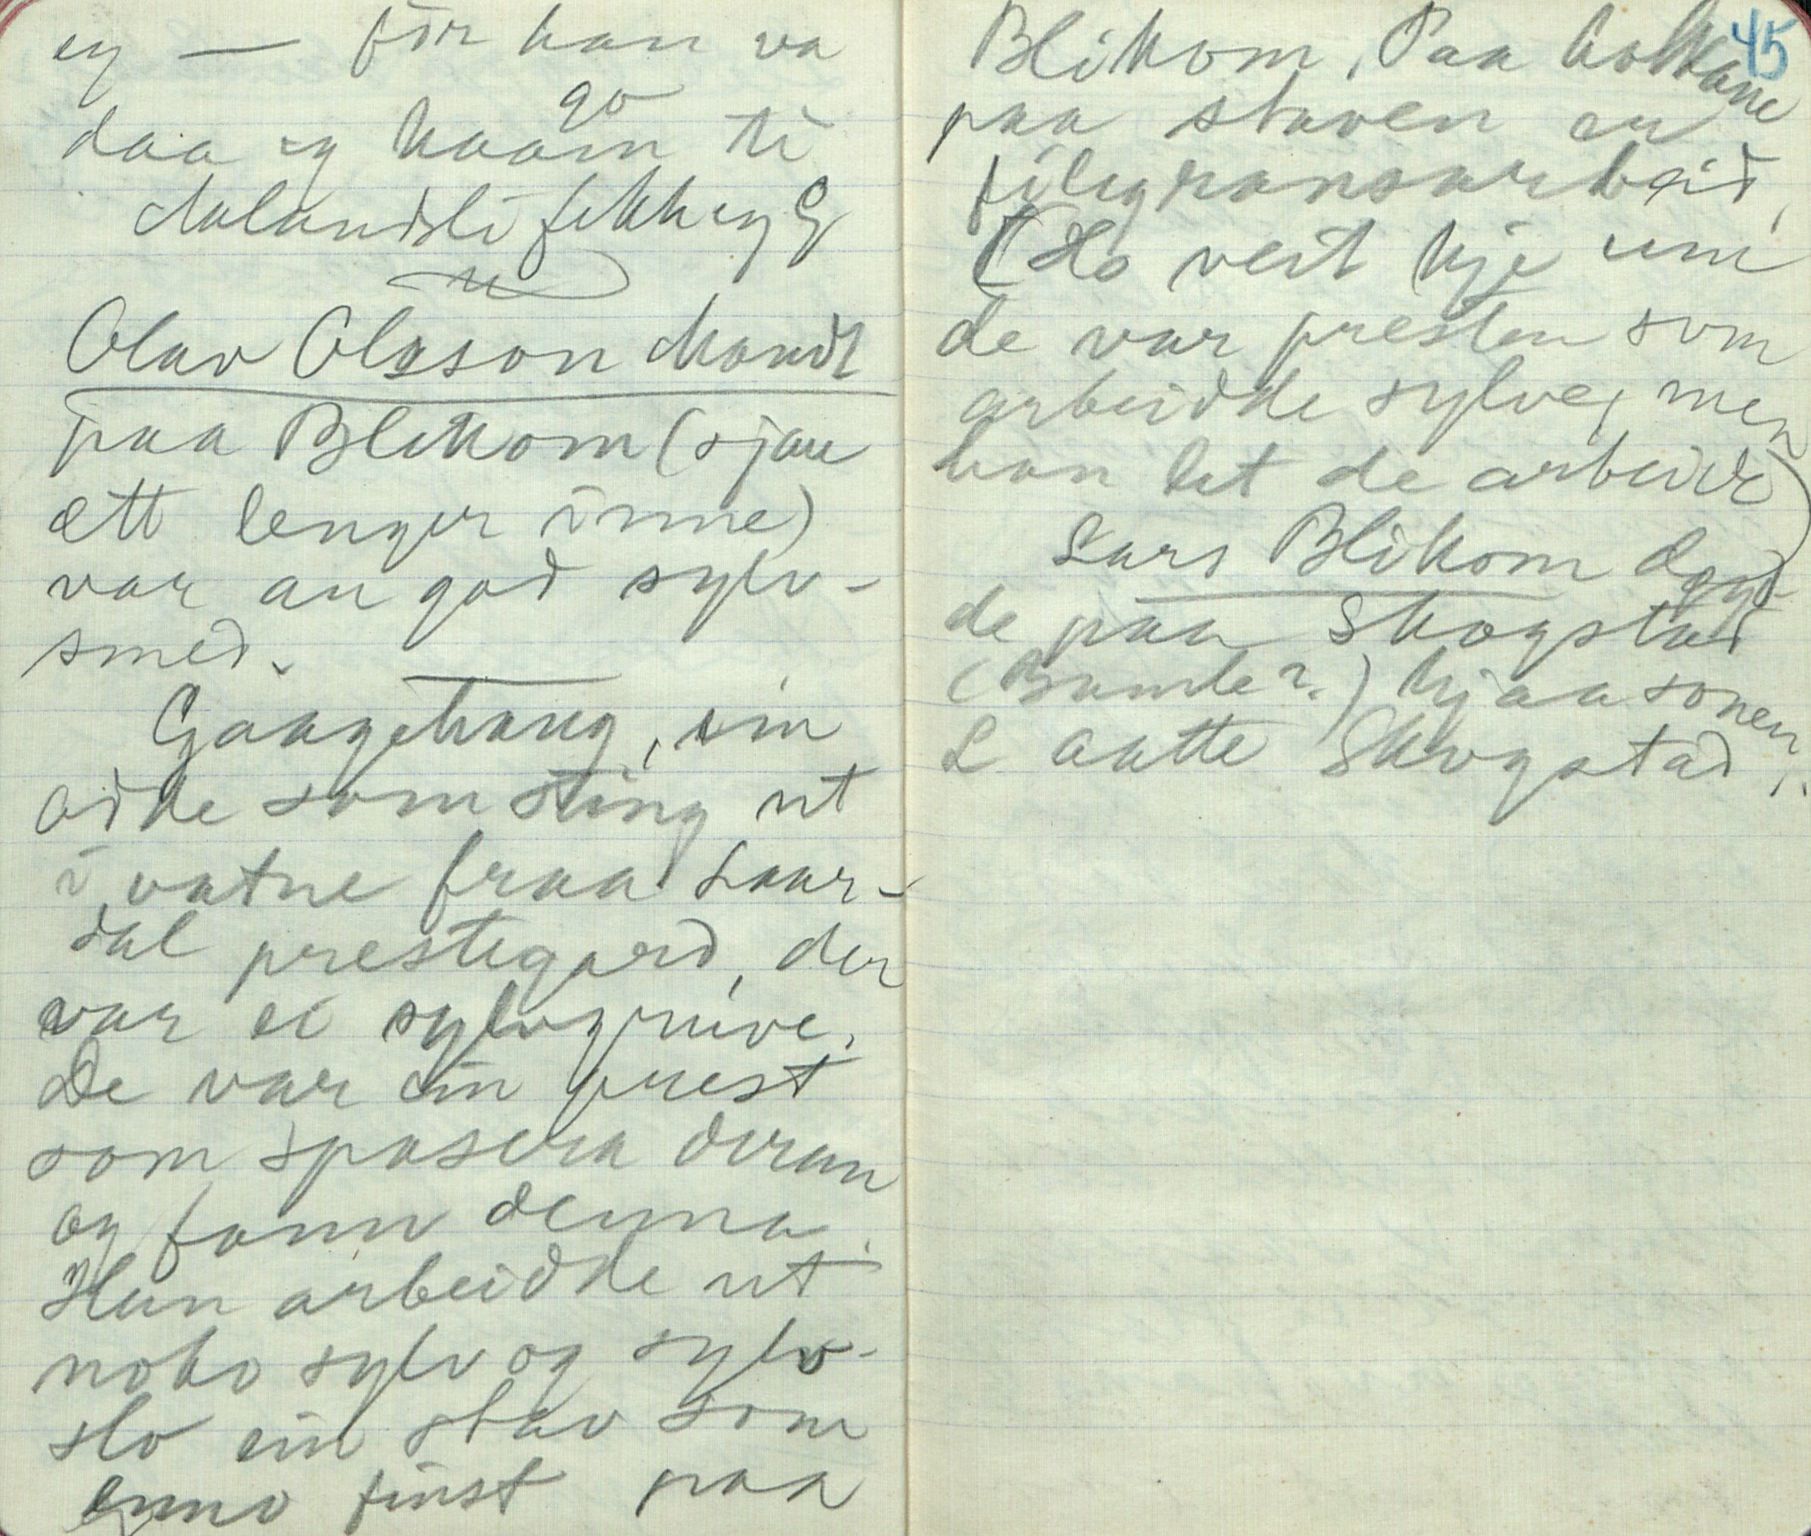 eg — för han va
90
daa eg kaam ti
Malandsli fekk eg G
Olav Olsson Mandt
paa Blikom (sjau
ætt lenger inne)
var au god sylv-
smed.
Gaagehaug, ein
odde som sting ut
i vatne fraa Laar-
dal prestegard, der
var ei sylvgruve.
De var ein prest
som spasera derum
og fann denna.
Han arbeidde ut
noko sylv og sylv-
slo ein stav som
enno finst paa
45
Blikom. Paa holkane
paa staven er
filigransarbeid,
(Ho veit kje um
de var presten som
arbeidde sylve, men
han let de arbeide)
Lars Blikom döyd-
de paa Skogstad
(Bamle?) hjaa sonen,
L aatte Skogstad.